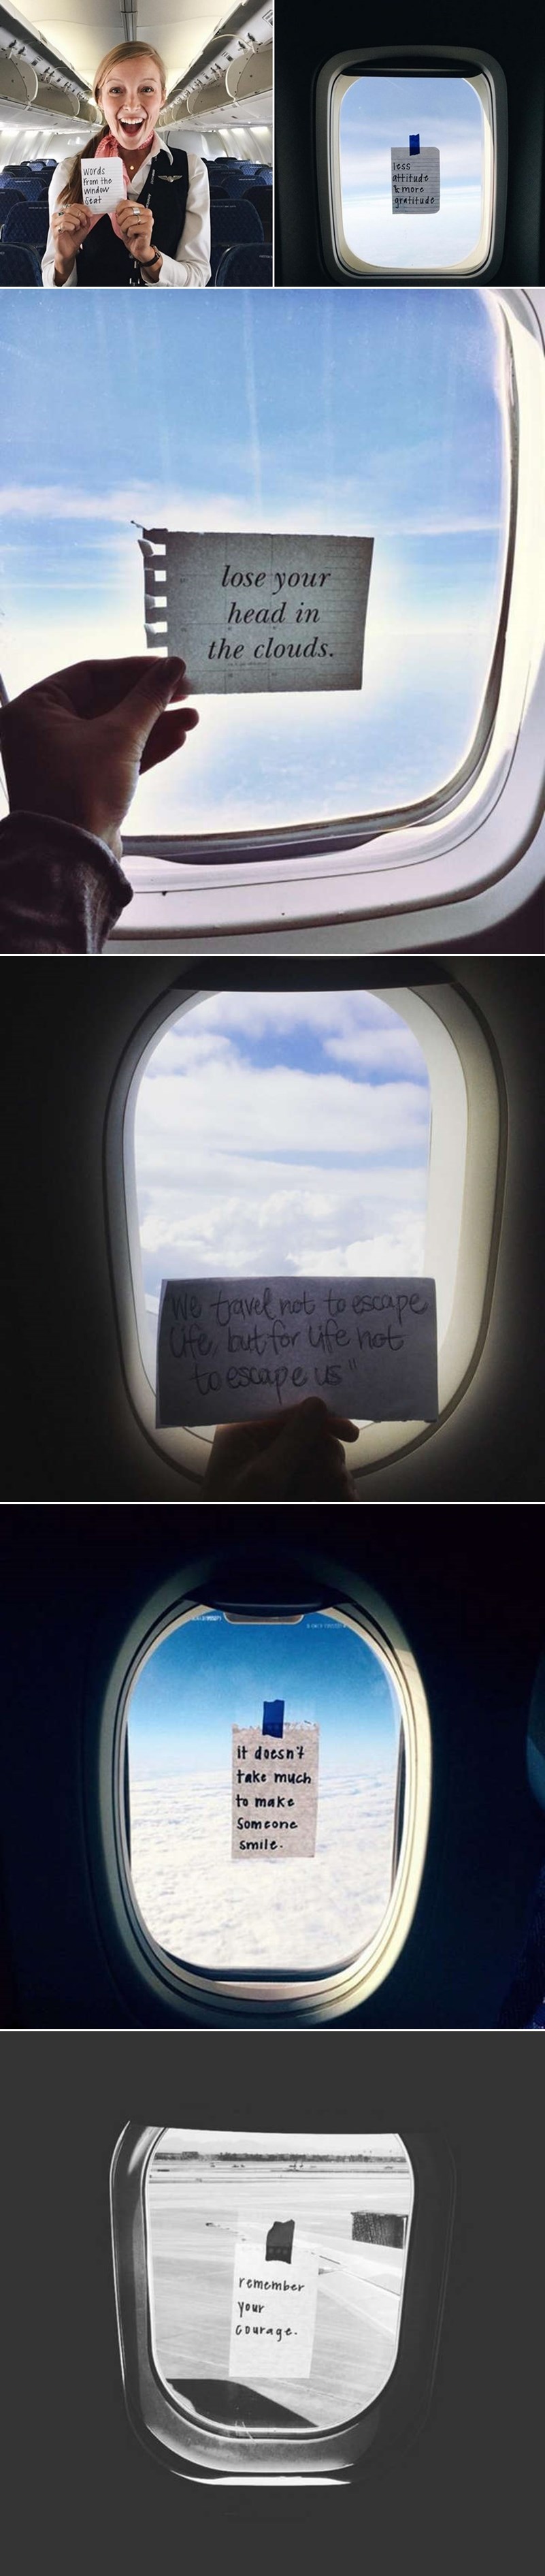 words
from the
window
seat
less
attitude
& more
gratitude
lose your
head in
the clouds.
"We travel not to escape
life, but for life not
to escape us"
it doesn't
take much
to make
someone
smile.
remember
your
courage.